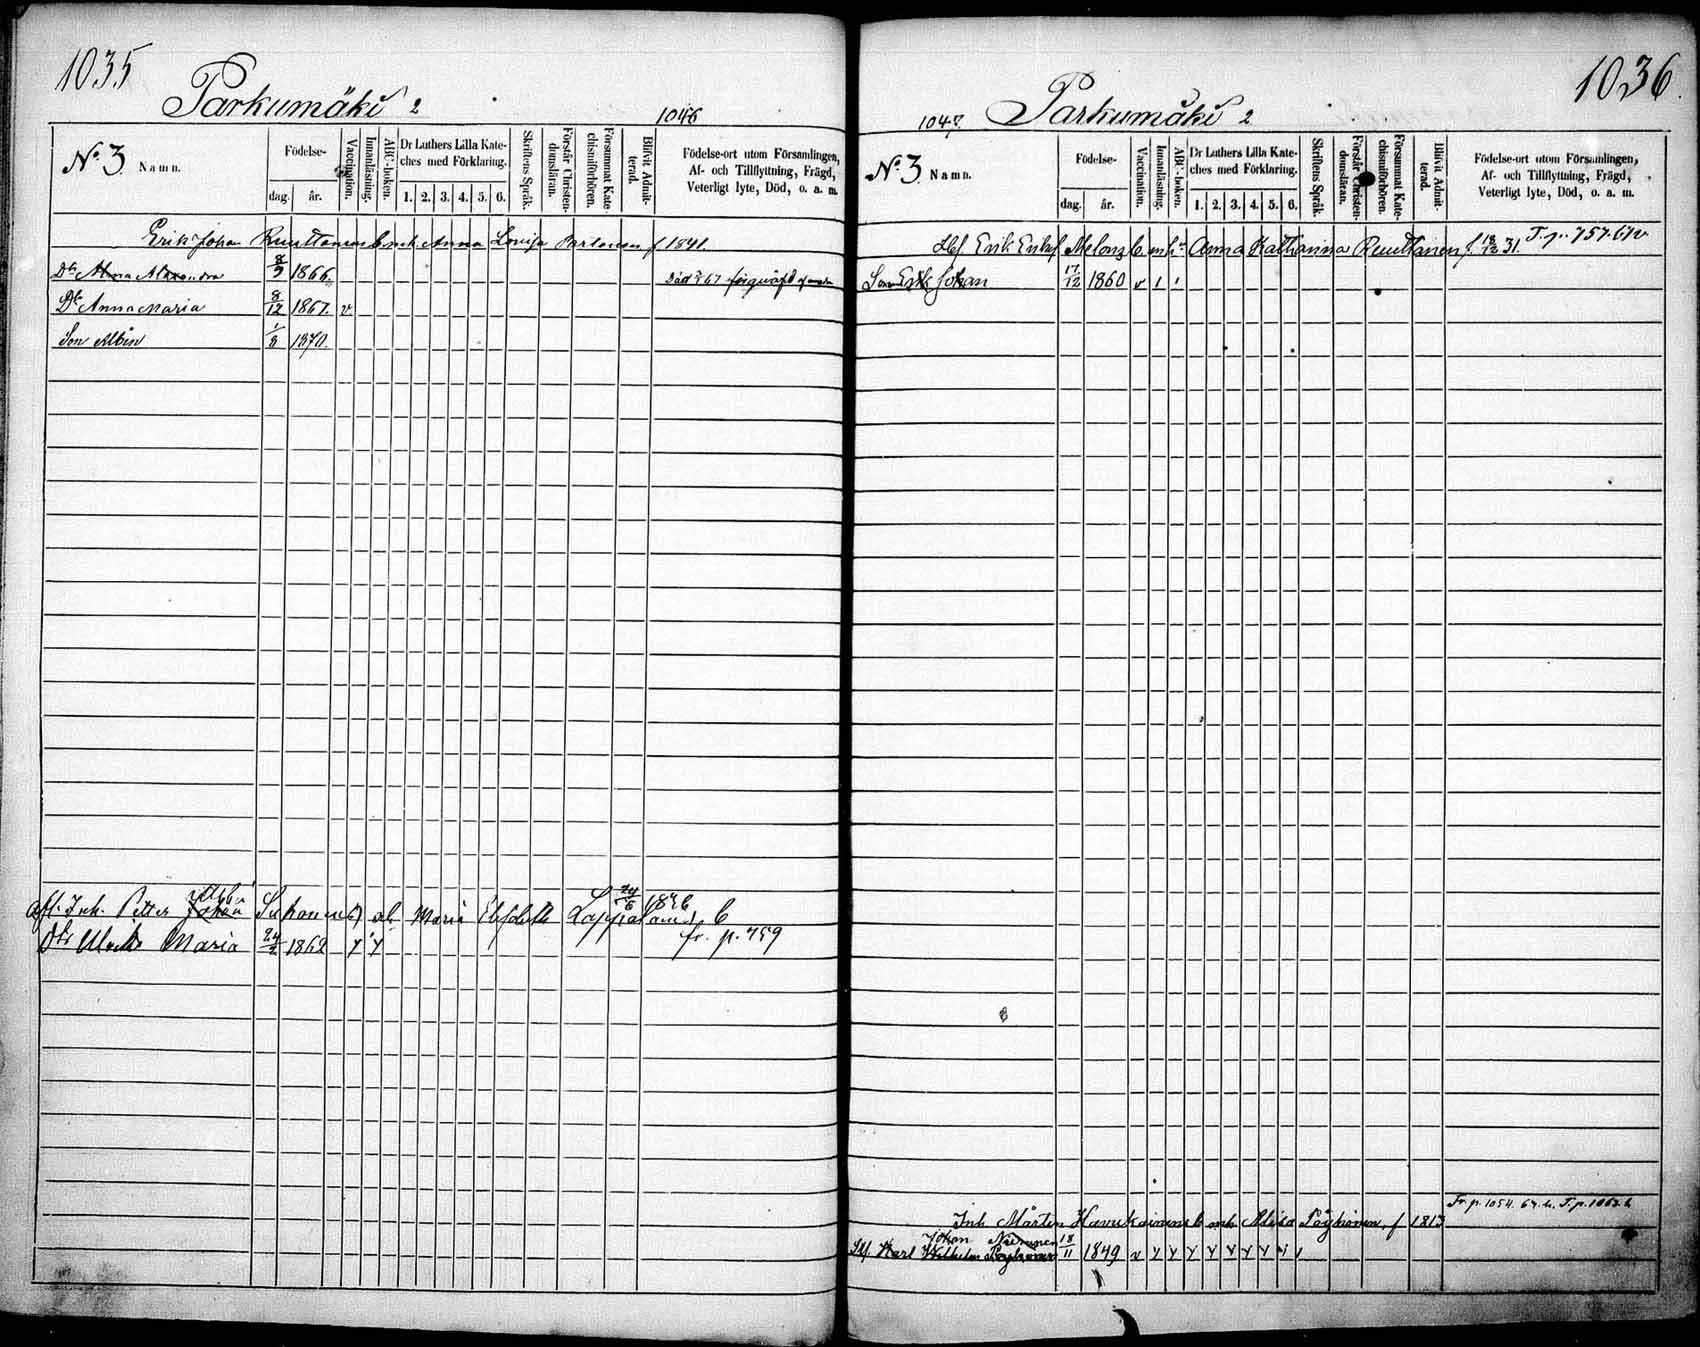 1035
Parkumäki 2
1046
No 3 Namn.
Födelse-
dag. år.
Vaccination.
Innanläsning.
ABC-boken.
Dr Luthers Lilla Kate-
ches med Förklaring.
1. 2. 3. 4. 5. 6.
Skriftens Språk.
Förstår Christen-
domsläran.
Försummat Kate-
chismiförhören.
Blifvit Admit-
terad.
Födelse-ort utom Församlingen,
Af- och Tillflyttning, Frägd,
Veterligt lyte, Död, o. a. m.
Erik Johan Ruuttanens b. enk. Anna Lovisa Partanen f 1841.
Dr Alma Alexandra 8/9 1866. Död 67
Dr Anna Maria 8/12 1867. v
Son Albin 1/8 1870.
Inh. Petter Johan Maria Elisabeth 24/6 1826
fr. p. 759
Ulrika Maria 24/2 1862
1036
1047.
Parkumäki 2
No 3 Namn.
Födelse-
dag. år.
Vaccination.
Innanläsning.
ABC-boken.
Dr Luthers Lilla Kate-
ches med Förklaring.
1. 2. 3. 4. 5. 6.
Skriftens Språk.
Förstår Christen-
domsläran.
Försummat Kate-
chismiförhören.
Blifvit Admit-
terad.
Födelse-ort utom Församlingen,
Af- och Tillflyttning, Frägd,
Veterligt lyte, Död, o. a. m.
T. p. 757.
Erik Anna Katharina Ruuttanen f. 18/12 31.
Son Erik Johan 17/12 1860 v
Fr. p. 1054. T. p. 1063.
Inh. Mårten Havukainens b. enk. f 1813
Johan Nieminen
Karl Wilhelm 18/11 1849 v